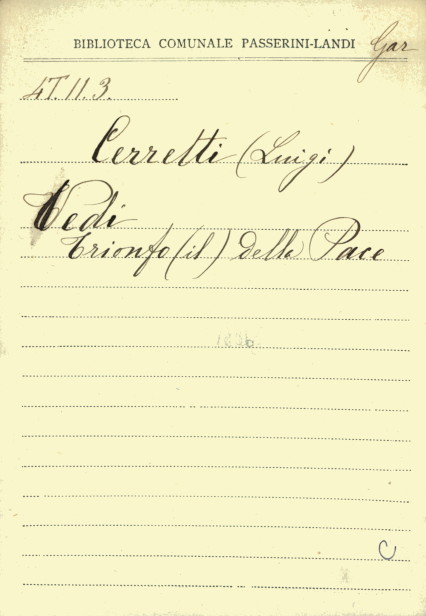 BIBLIOTECA COMUNALE PASSERINI-LANDI Gar
4T.II.3.
Cerretti (Luigi)
Vedi
Trionfo (il) della Pace
C